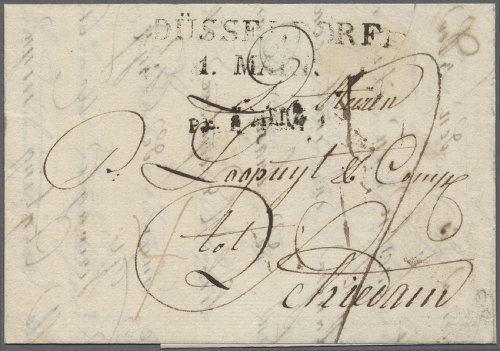 DÜSSELDORFF
1. MAI
Heeren
P. Loopuyt & Comp
tot
Schiedam